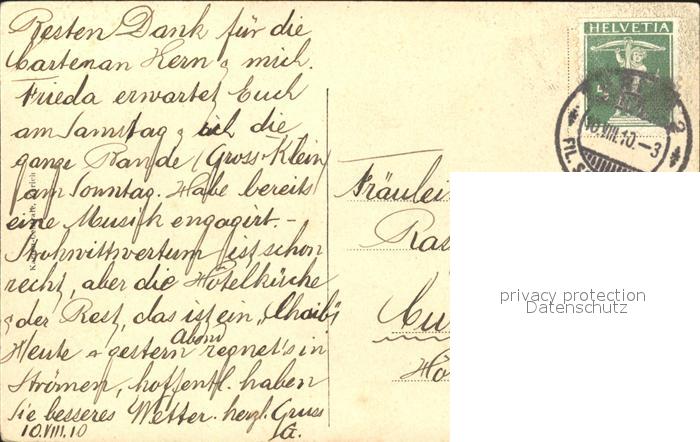 Besten Dank für die
Carten an Hern & mich.
Frieda erwartet Euch
am Samstag & ich die
ganze Bande (Gross & Klein)
am Sonntag. Habe bereits
eine Musik engagirt. –
ist schon
recht, aber die Hôtelküche
& der Rest, das ist ein „Chaib"
Abend
Heute & gestern regnet's in
Strömen, hoffentl. haben
Sie besseres Wetter. herzl. Gruss
10.VIII.10
HELVETIA
10.VIII.10.–3
2
FIL. S
Fräulei
privacy protection
Datenschutz